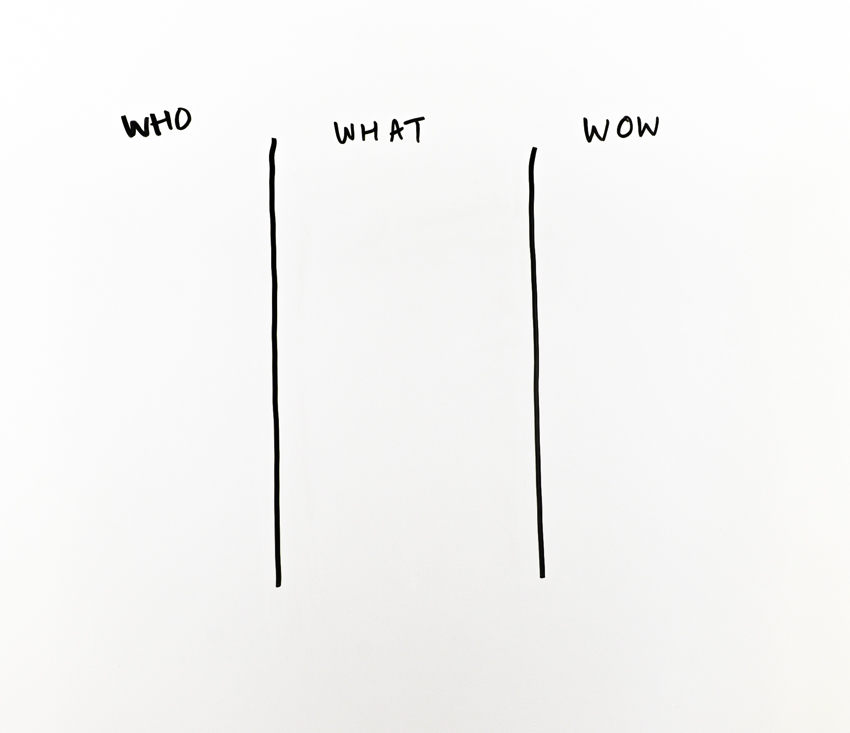 WHO WHAT WOW